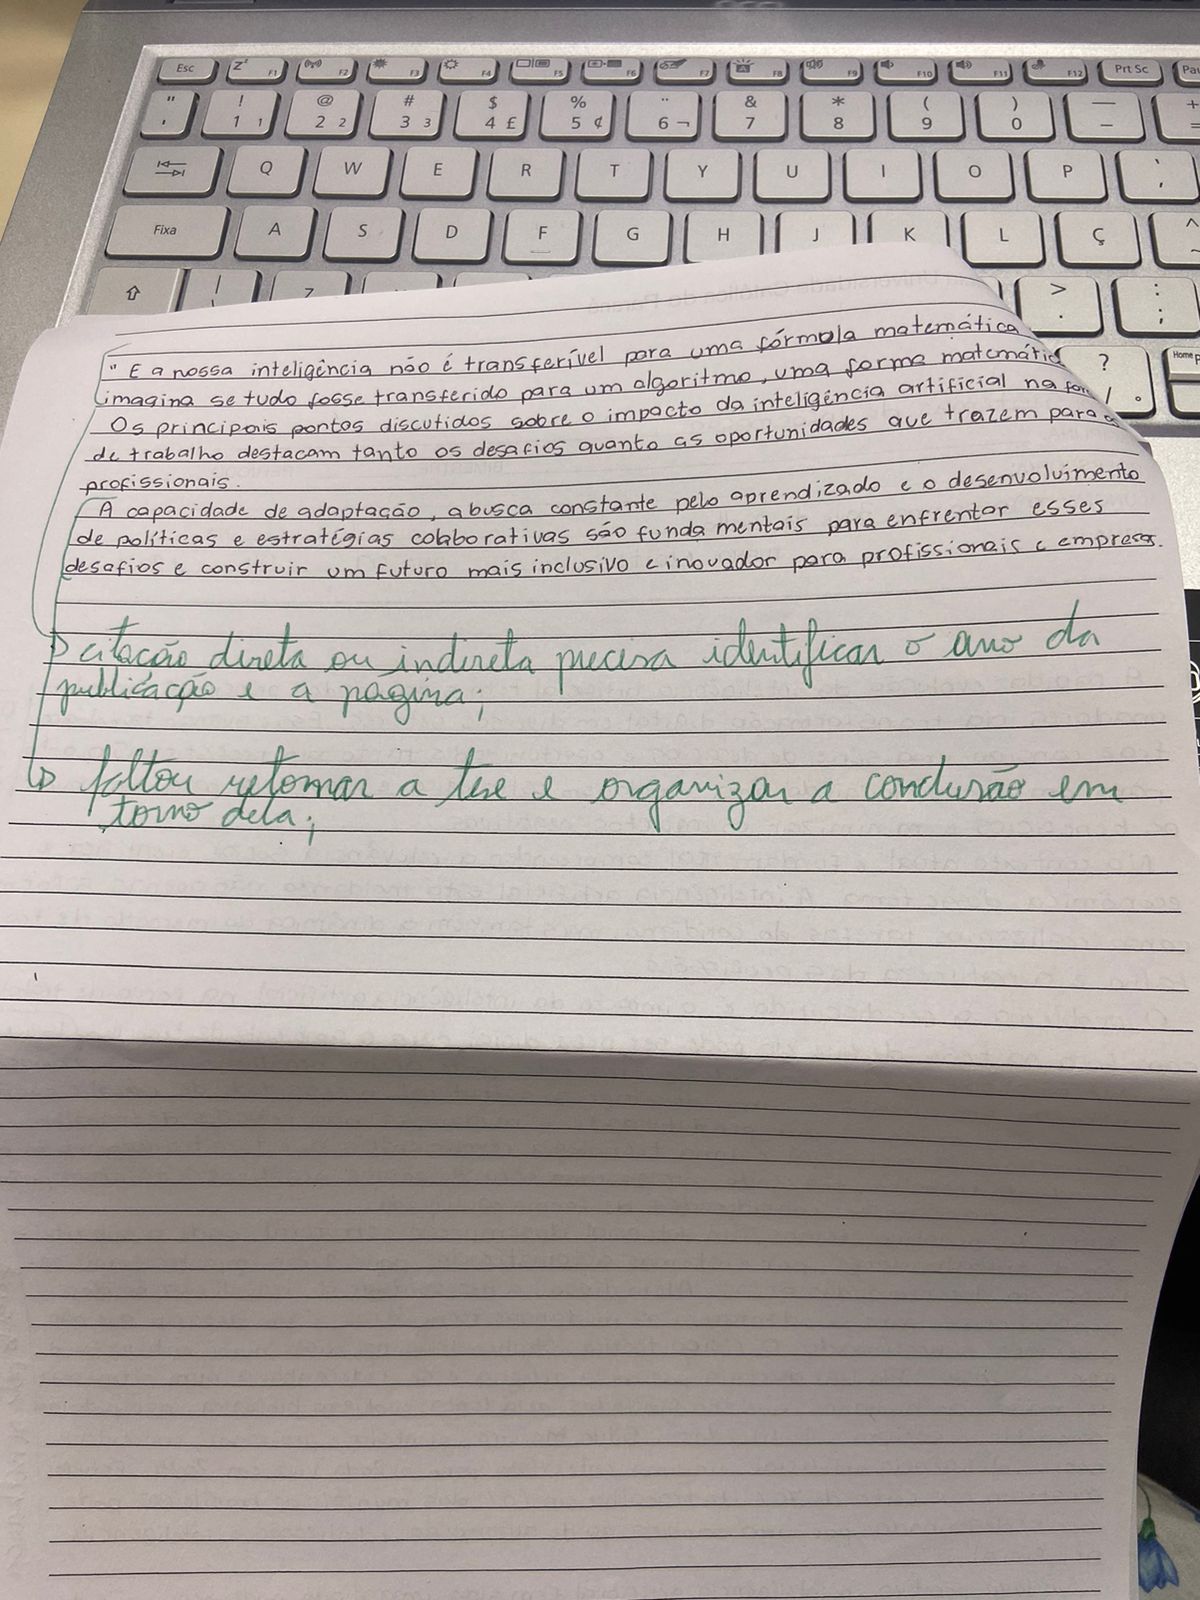 Esc F1 F2 F3 F4 F5 F6 F7 F8 F9 F10 F11 F12 Prt Sc
" ' ! 1 1 @ 2 2 # 3 3 $ 4 £ % 5 ¢ ¨ 6 ¬ & 7 * 8 ( 9 ) 0 — - + =
Q W E R T Y U I O P ` ´
Fixa A S D F G H J K L Ç ^ ~
> . : ;
? / ° Home
" E a nossa inteligência não é transferível para uma fórmula matemática
imagina se tudo fosse transferido para um algoritmo, uma forma
Os principais pontos discutidos sobre o impacto da inteligência artificial na
de trabalho destacam tanto os desafios quanto as oportunidades que trazem para
profissionais.
A capacidade de adaptação, a busca constante pelo aprendizado e o desenvolvimento
de políticas e estratégias colaborativas são fundamentais para enfrentar esses
desafios e construir um futuro mais inclusivo e inovador para profissionais e empresas.
citação direta ou indireta precisa identificar o ano da
publicação e a página;
faltou retomar a tese e organizar a conclusão em
torno dela;